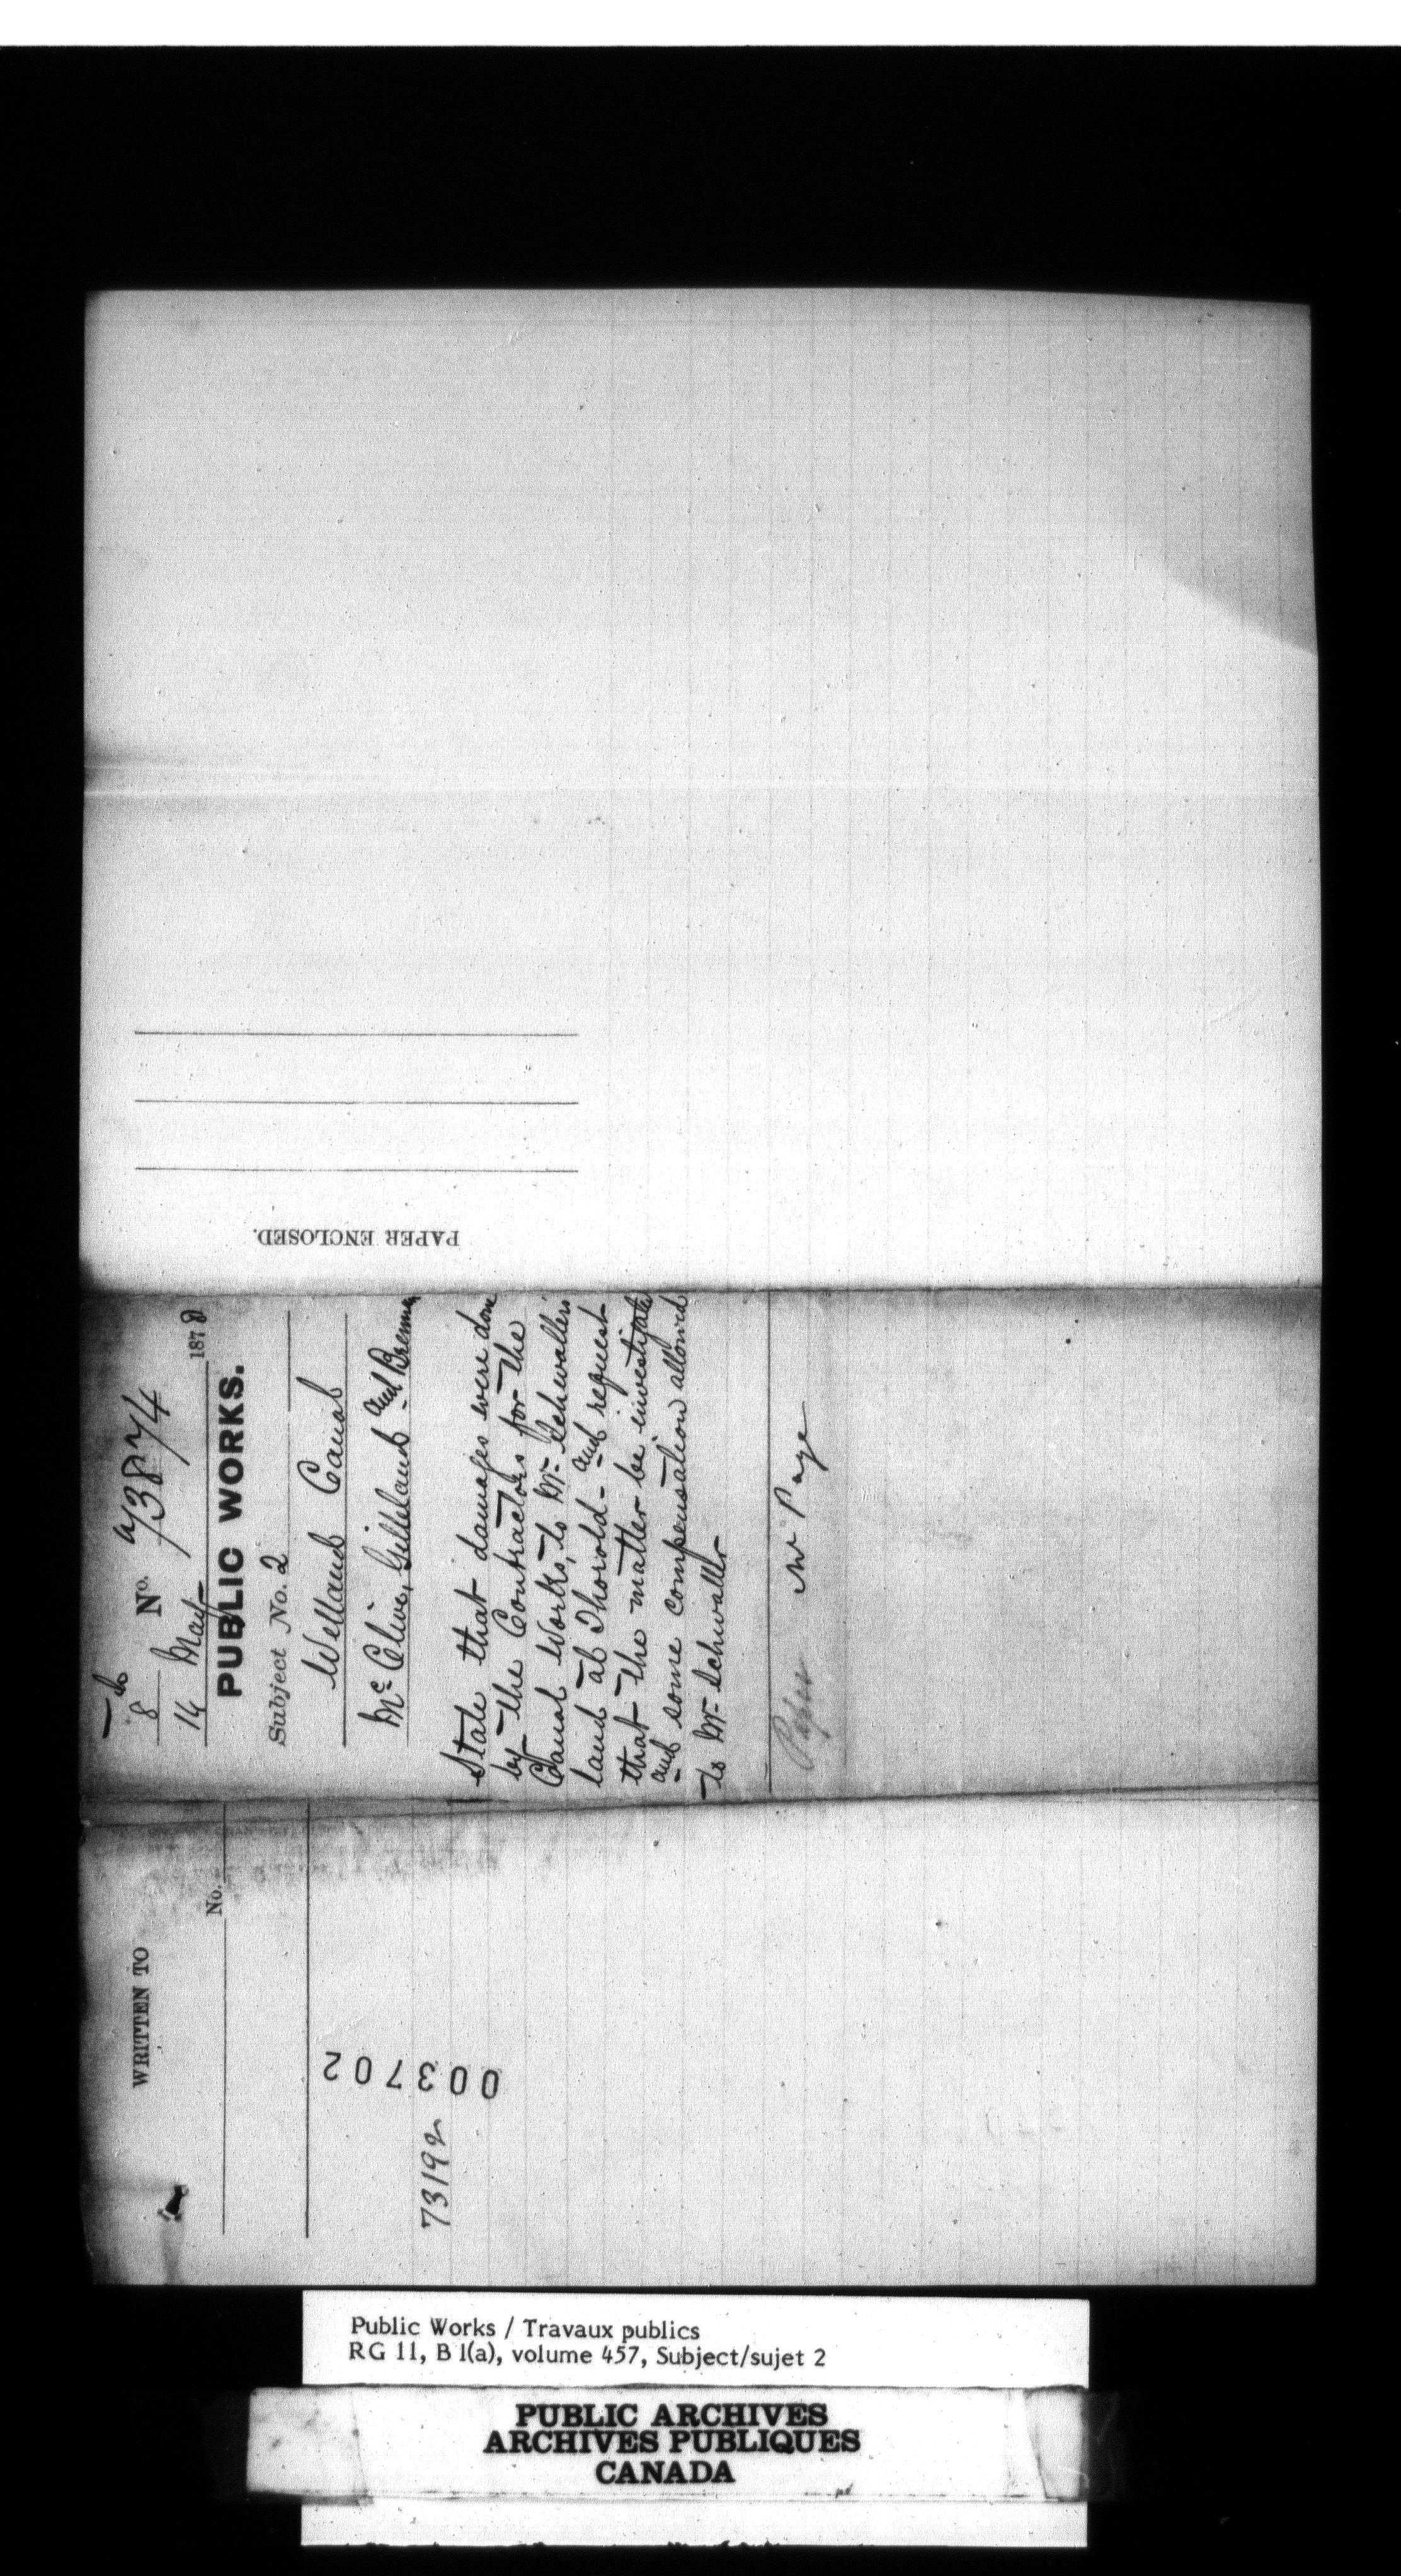 8 No. 73874
14 May 1878
PUBLIC WORKS.
Subject No. 2
Welland Canal
McClive, Gilleland and Brennan
State that damages were done
by the Contractors for the
Canal Works, to Mr Schwaller's
land at Thorold - and request
that the matter be investigated
and some compensation allowed
to Mr Schwaller
Mr Page
PAPER ENCLOSED.
WRITTEN TO
No.
003702
73192
Public Works / Travaux publics
RG 11, B 1(a), volume 457, Subject/sujet 2
PUBLIC ARCHIVES
ARCHIVES PUBLIQUES
CANADA